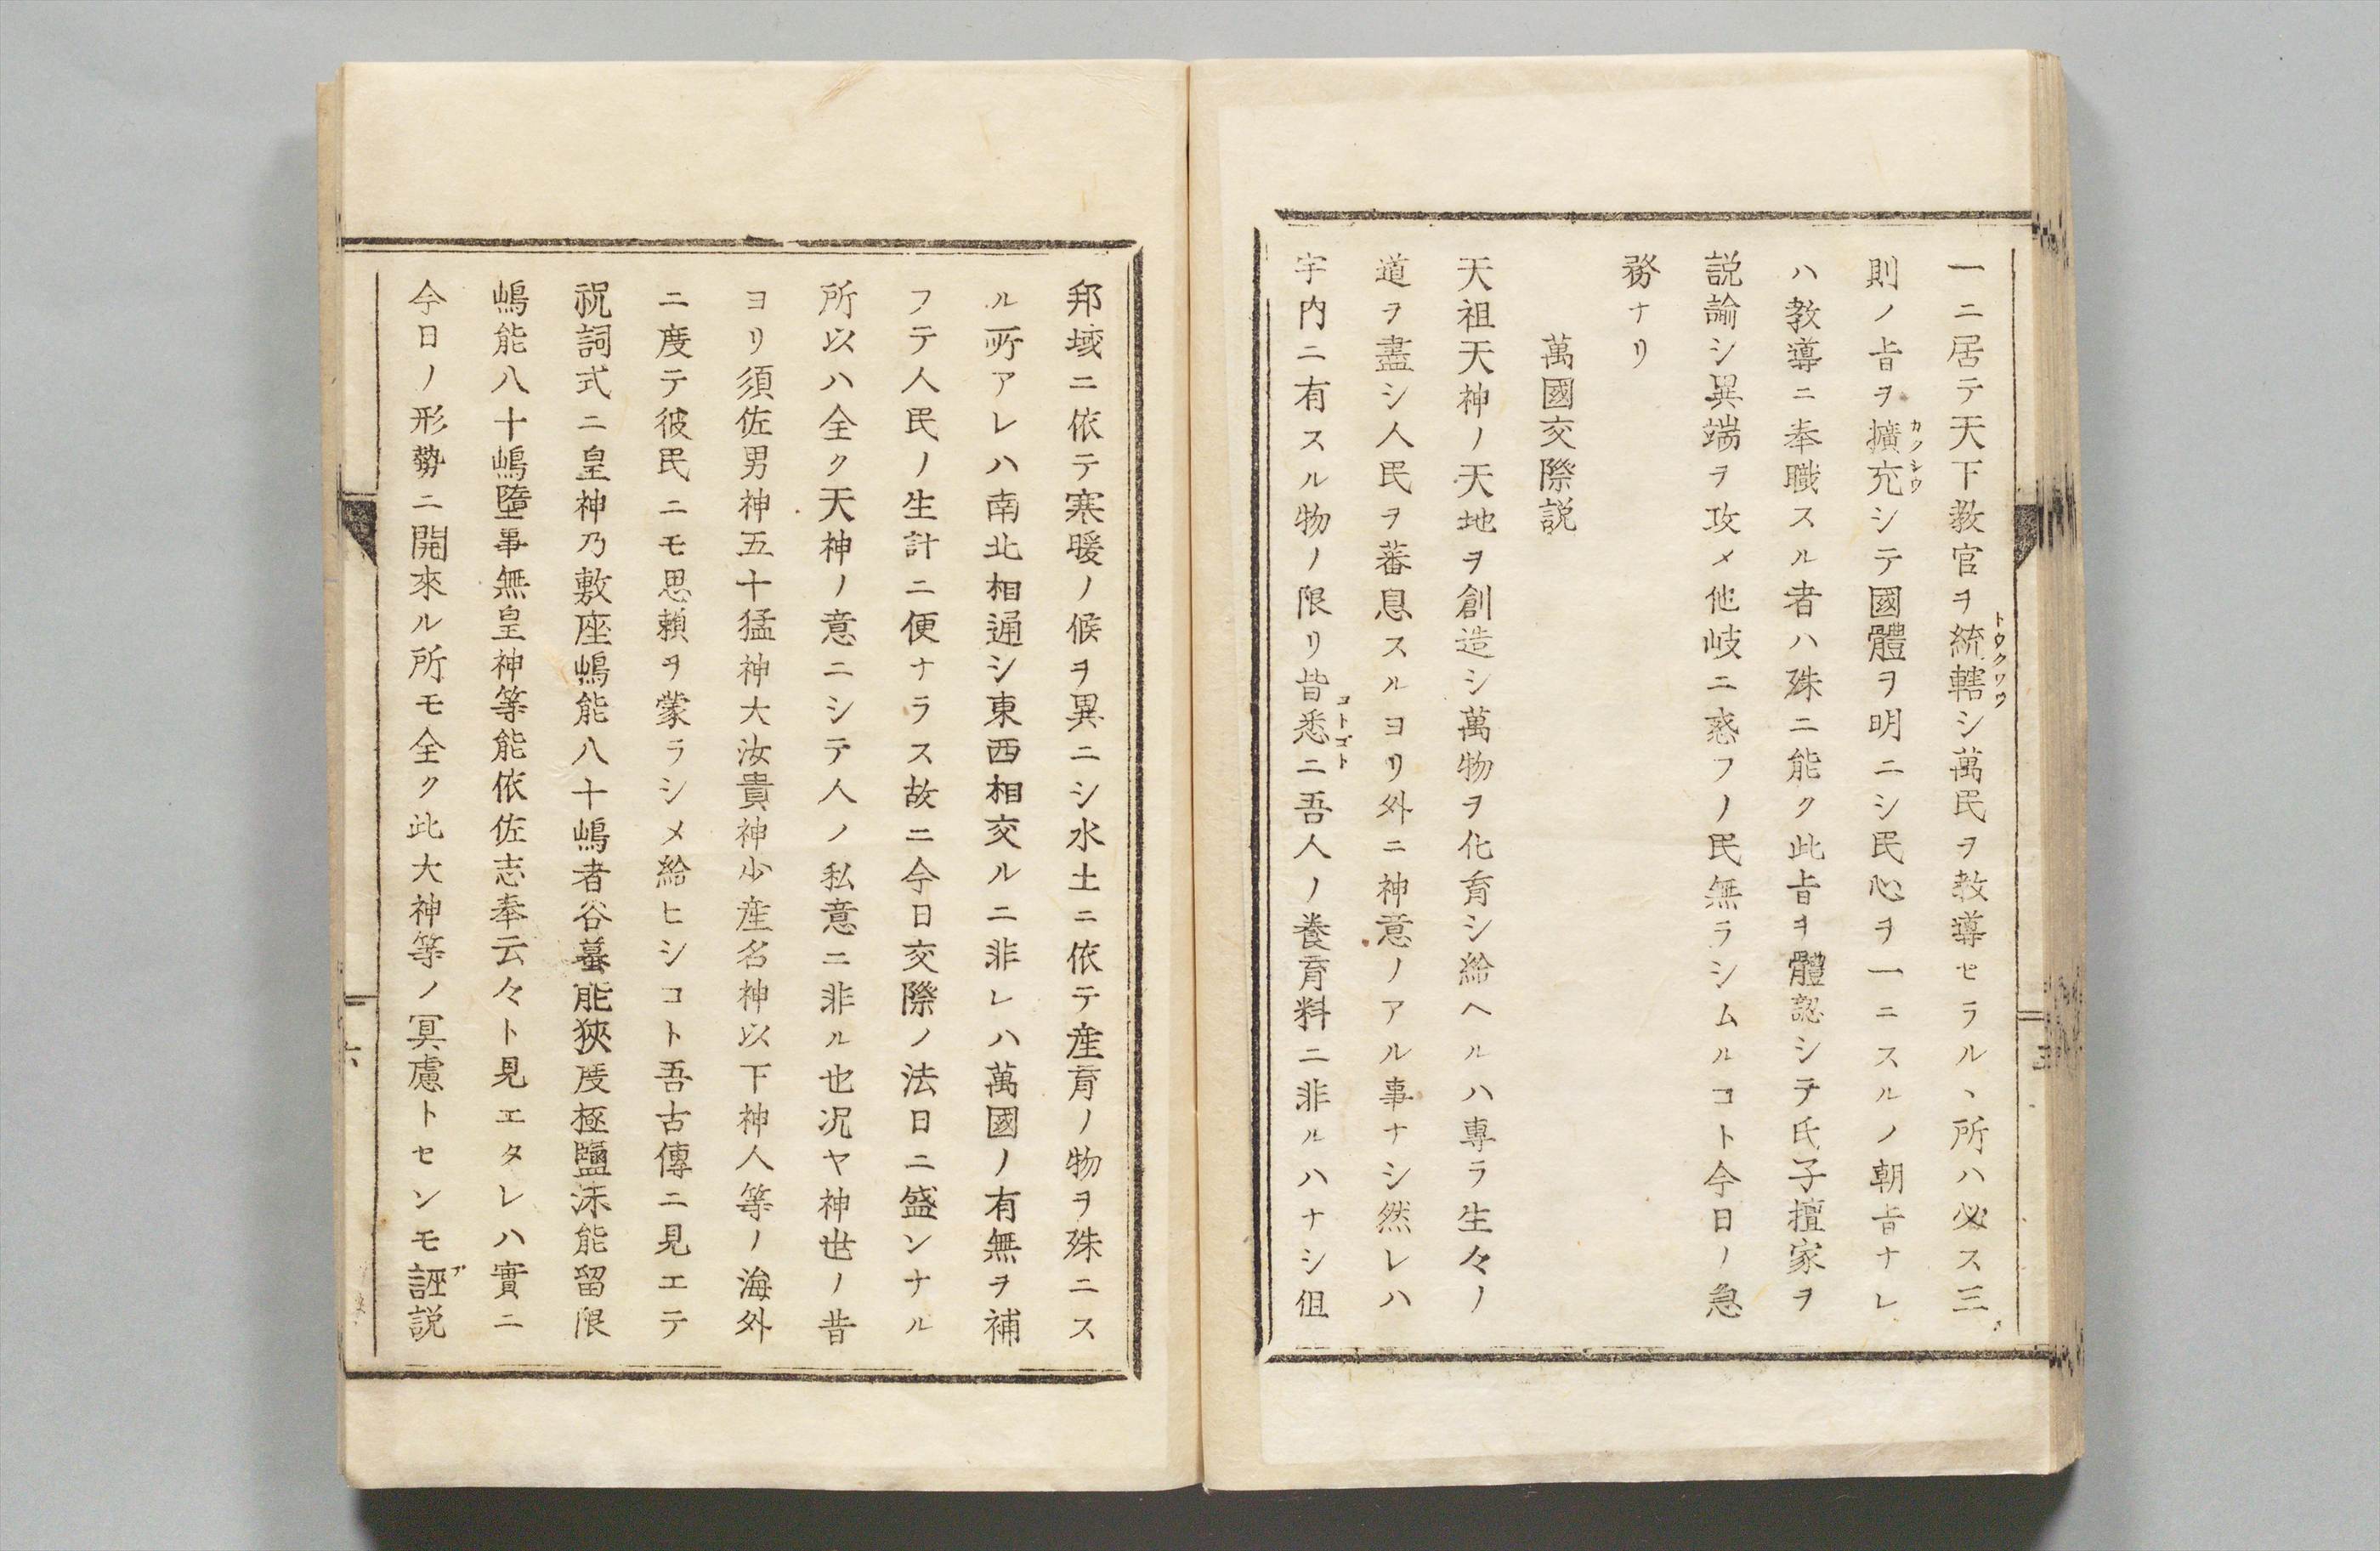 一ニ居テ天下教官ヲ統轄シ萬民ヲ教導セラルヽ所ハ必ス三
則ノ旨ヲ擴充シテ國體ヲ明ニシ民心ヲ一ニスルノ朝旨ナレ
ハ教導ニ奉職スル者ハ殊ニ能ク此旨ヲ體認シテ氏子擅家ヲ
説諭シ異端ヲ攻メ他岐ニ惑フノ民無ラシムルコト今日ノ急
務ナリ
萬國交際説
天祖天神ノ天地ヲ創造シ萬物ヲ化育シ給ヘルハ專ラ生々ノ
道ヲ盡シ人民ヲ蕃息スルヨリ外ニ神意ノアル事ナシ然レハ
宇内ニ有スル物ノ限リ皆悉ニ吾人ノ養育料ニ非ルハナシ但
邦域ニ依テ寒暖ノ候ヲ異ニシ水土ニ依テ産育ノ物ヲ殊ニス
ル所アレハ南北相通シ東西相交ルニ非レハ萬國ノ有無ヲ補
フテ人民ノ生計ニ便ナラス故ニ今日交際ノ法日ニ盛ンナル
所以ハ全ク天神ノ意ニシテ人ノ私意ニ非ル也况ヤ神世ノ昔
ヨリ須佐男神五十猛神大汝貴神少産名神以下神人等ノ海外
ニ度テ彼民ニモ思頼ヲ蒙ラシメ給ヒシコト吾古傳ニ見エテ
祝詞式ニ皇神乃敷座嶋能八十嶋者谷蟇能狹度極鹽沫能留限
嶋能八十嶋墮事無皇神等能依佐志奉云々ト見エタレハ實ニ
今日ノ形勢ニ開來ル所モ全ク此大神等ノ冥慮トセンモ誣説
トウクワウ
カクシウ
コトゴト
六